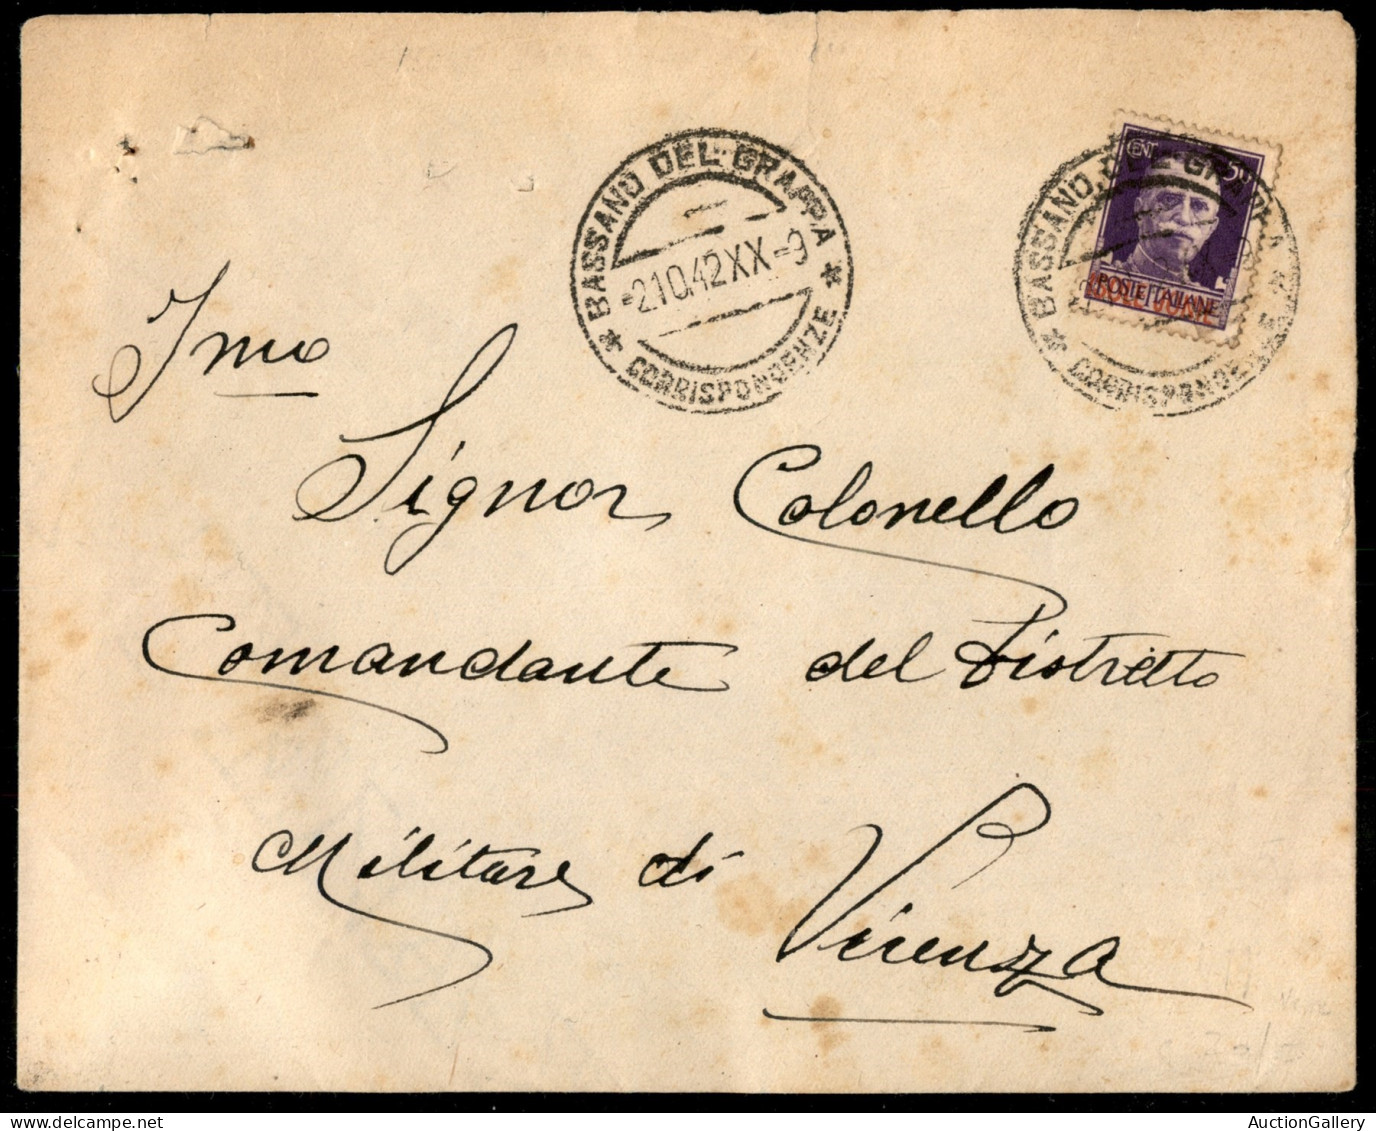 BASSANO DEL GRAPPA
-2.10.42 XX -9
* CORRISPONDENZE *
CENT 50
POSTE ITALIANE
BASSANO DEL GRAPPA
* CORRISPONDENZE *
Immo
Signor Colonello
Comandante del Distretto
Militare di
Vicenza
AuctionGallery